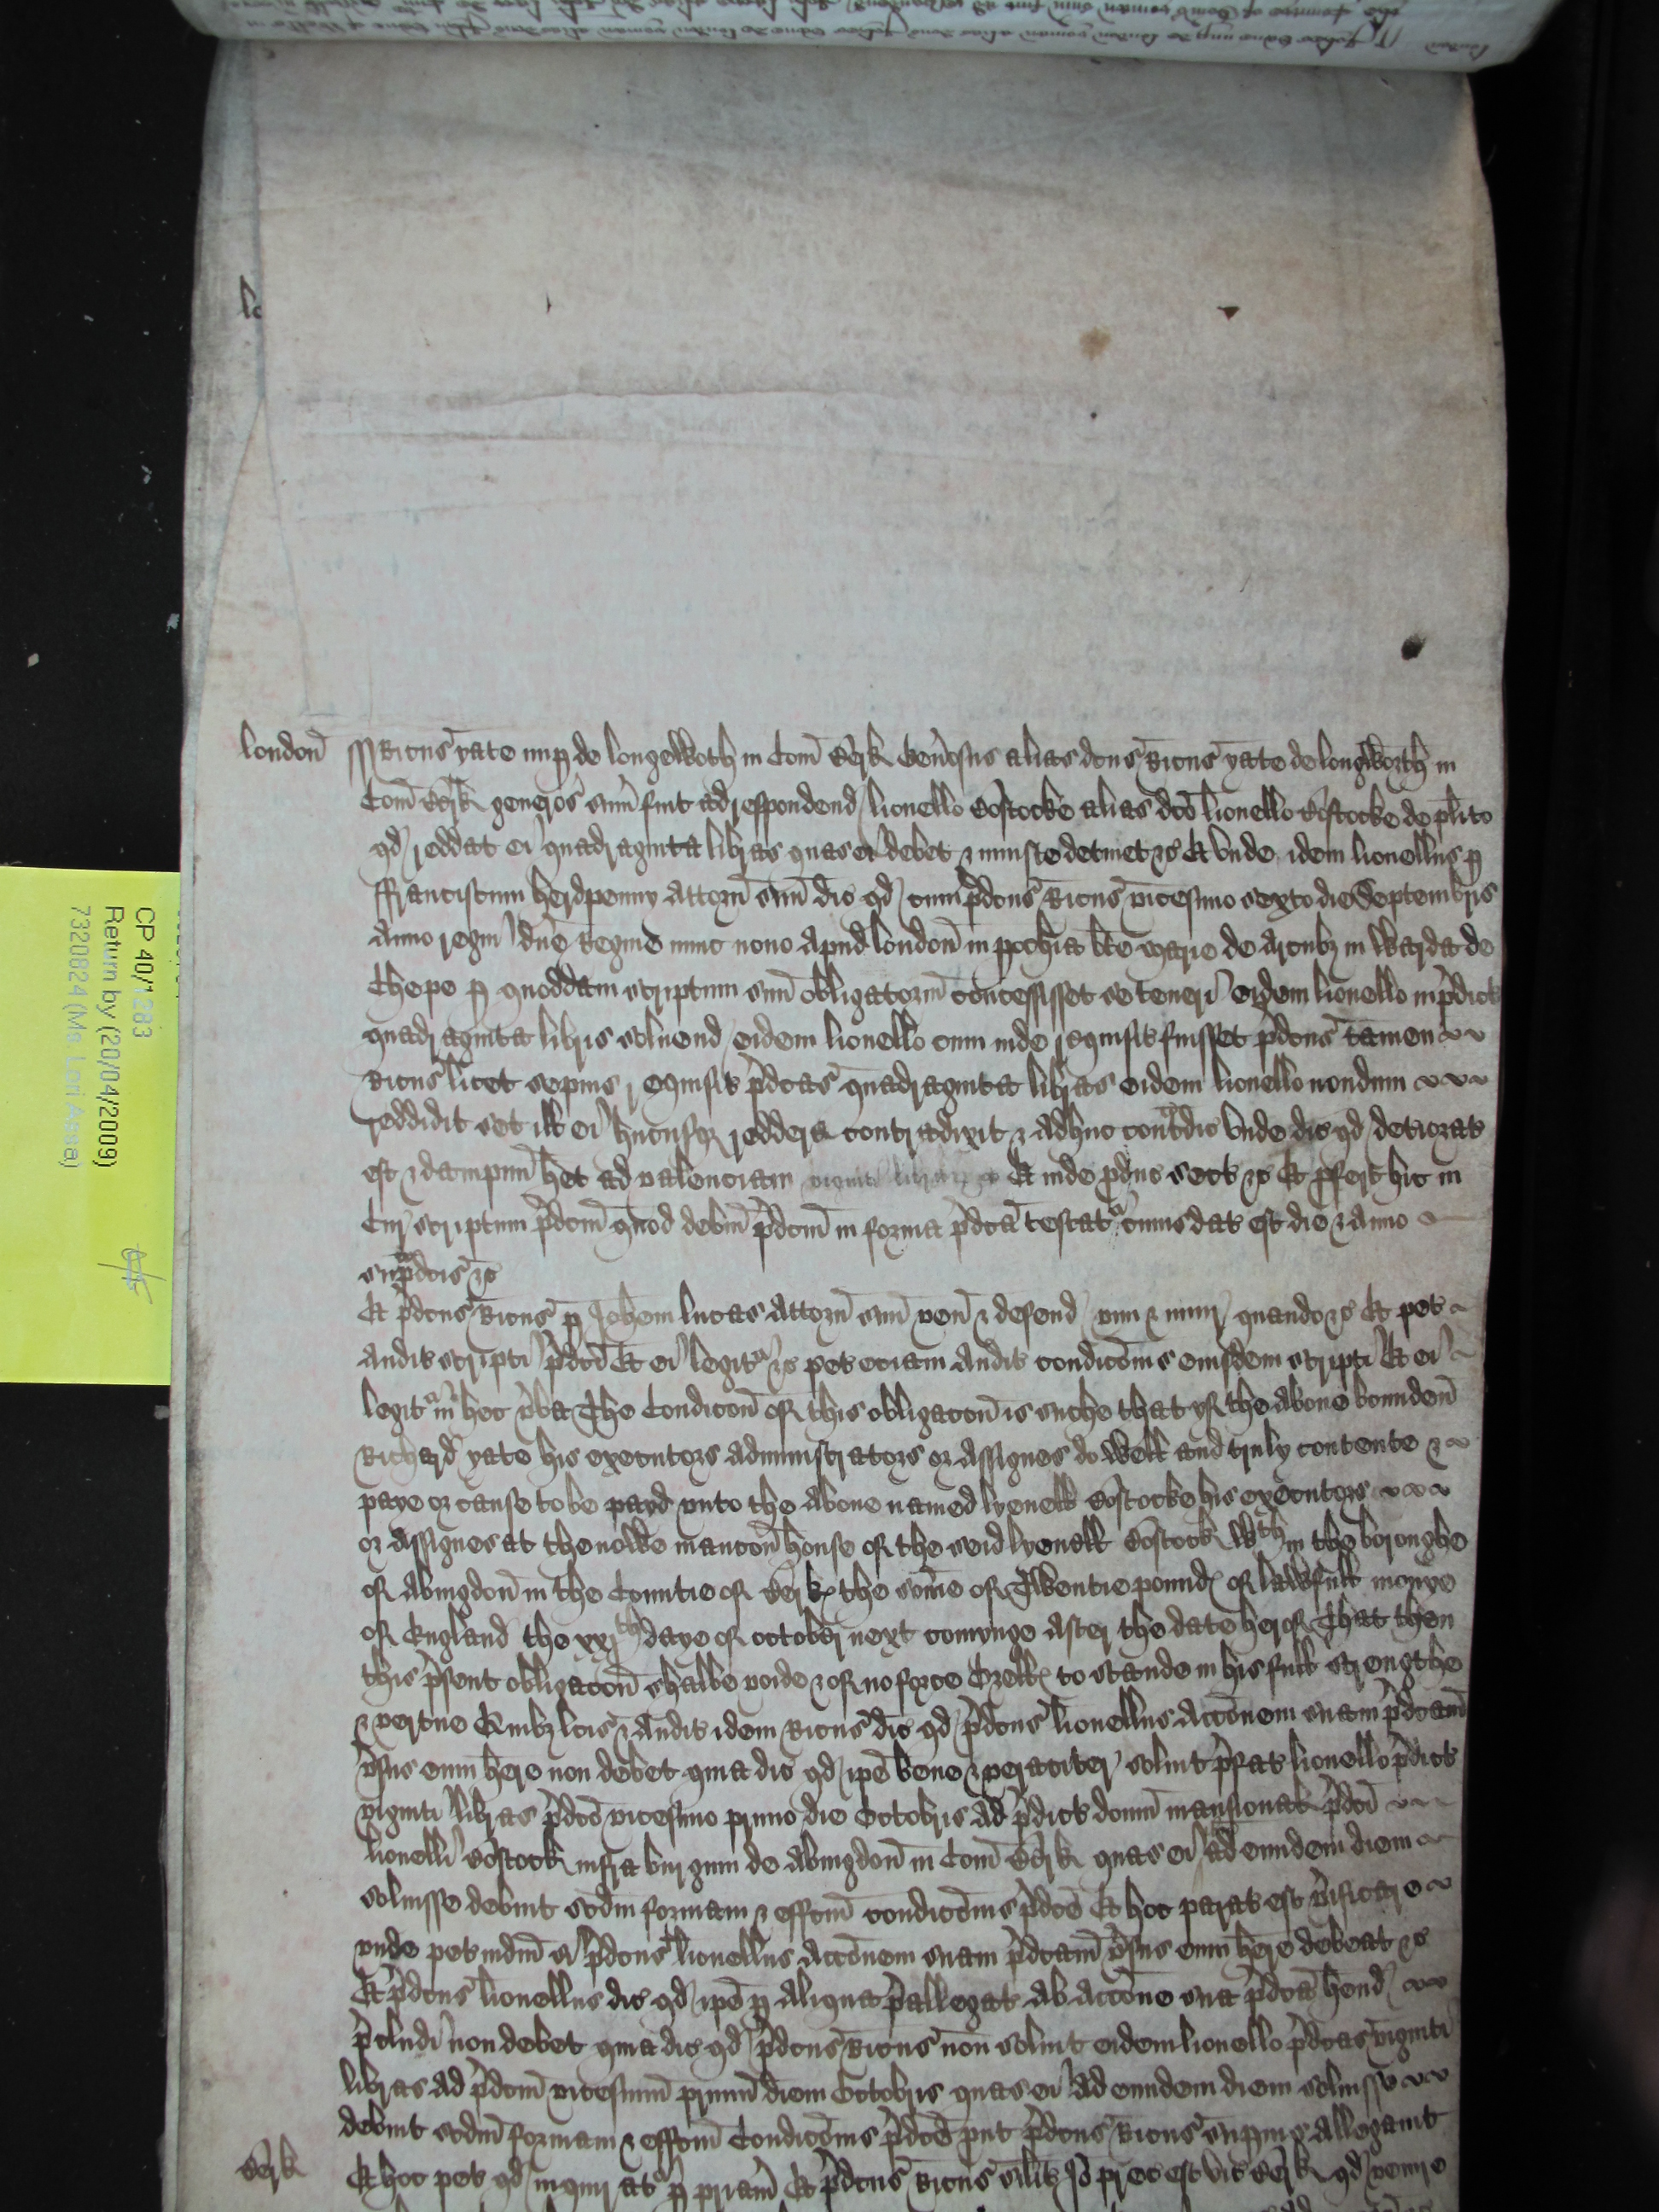 london̄ Ricus yate nup de longeworth in Com̄ Berk Generosus alias dcus Ricus yate de longworth in
Com̄ Berk generos sum̄ fuit ad respondend lionello Bostocke alias dco lionello Bostocke de plito
qd reddat ei quadraginta libras quas ei debet & iniuste detinet &c Et vnde idem lionellus p
ffranciscum herdpenny Attorn̄ suū dic qd cum p̄dcus Ricus vicesimo sexto die Septembris
Anno regni dn̄e Regine nunc nono Apud london̄ in pochia bte marie de Arcubz in Warda de
Chepe p quoddam scriptum suū obligatoriū concessisset se teneri eidem lionello in p̄dict
quadraginta libris soluend eidem lionello cum inde requisit fuisset p̄dcus tamen
Ricus licet sepius requisit p̄dcas quadraginta libras eidem lionello nondum
reddidit set ill ei hucusqz reddere contradixit & adhuc contradic vnde dic qd deteriorat
est & dampnū het ad valenciam viginti libraz Et inde pduc sect &c Et pfert hic in
Cur scriptum p̄dcm̄ quod debm̄ p̄dcm̄ in forma p̄dca testat cuius dat est die & anno
sup̄dcis &c
Et p̄dcus Ricus p Johem lucas Attorn̄ suū ven̄ & defend vim & iniur quando &c Et pet
Audit scripti p̄dci Et ei legit &c pet eciam Audit condicōnis eiusdem scripti Et ei
legit in hec v̄ba The Condicon̄ of this obligacon̄ is suche that yf the Aboue bounden̄
Richard yate his executors Administrators or Assignes do well and truly contente &
paye or cause to be payd vnto the Aboue named lyenell Bostocke his executors
or Assignes at the nowe mancon̄ house of the seid lyonell Bostock wᵗʰin the boroughe
of Abingdon̄ in the Countie of Berk the some of Twentie pound of lawfull monye
of England the xxjᵗʰ daye of october next comynge After the date herof That then
this p̄sent obligacon̄ shalbe voide & of no force Or ells to stande in his full strengthe
& vertue Quibz lcis & Audit idem Ricus dic qd p̄dcus lionellus Accōnem suam p̄dcam̄
v̄sus eum here non debet quia dic qd ipe bene & veraciter soluit p̄fat lionello p̄dict
viginti libras p̄dco vicesimo primo die Octobris Ad p̄dict domū mansional p̄dci
lionelli Bostock infra burgum de Abingdon̄ in Com̄ Berk quas ei ad eundem diem
soluisse debuit scdm formam & effcm̄ condicōnis p̄dce Et hoc parat est v̄ificare
vnde pet iudm̄ si p̄dcus lionellus Accōnem suam p̄dcam̄ v̄sus eum here debeat &c
Et p̄dcus lionellus dic qd ipe p Aliqua p̄allegat Ab Accōne sua p̄dca hend
p̄cludi non debet quia dic qd p̄dcus Ricus non soluit eidem lionello p̄dcas viginti
libras Ad p̄dcm̄ vicesimū primū diem Octobris quas ei Ad eundem diem soluisse
debuit scdm formam & effcm̄ Condicōnis p̄dce put p̄dcus Ricus supius Allegauit
Berk Et hoc pet qd inquirat p priam̄ Et p̄dcus Ricus silit Jo prec est vic Berk qd venire
CP 40/1283
Return by (20/04/2009)
7320824 (Ms. Lori Assa)